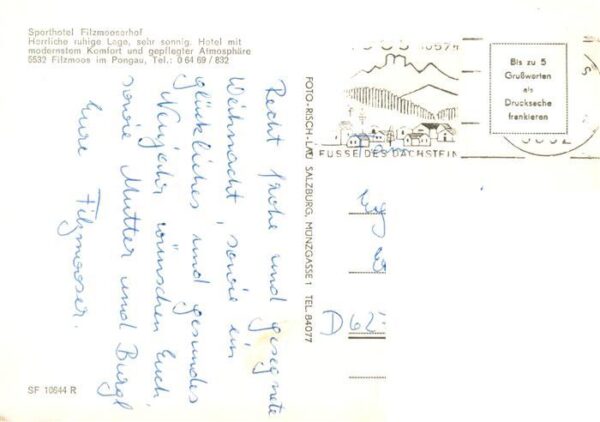 Sporthotel Filzmooserhof
Herrliche ruhige Lage, sehr sonnig. Hotel mit
modernstem Komfort und gepflegter Atmosphäre
5532 Filzmoos im Pongau, Tel.: 0 64 69 / 832
Recht frohe und gesegnete
Weihnacht, sowie ein
glückliches und gesundes
Neujahr wünschen Euch
sowie Mutter und Burgl
Eure Filzmooser.
SF 10644 R
FOTO-RISCH-LAU SALZBURG, MÜNZGASSE 1 TEL. 84077
FUSSE DES DACHSTEIN
Bis zu 5
Grußworten
als
Drucksache
frankieren
D 62